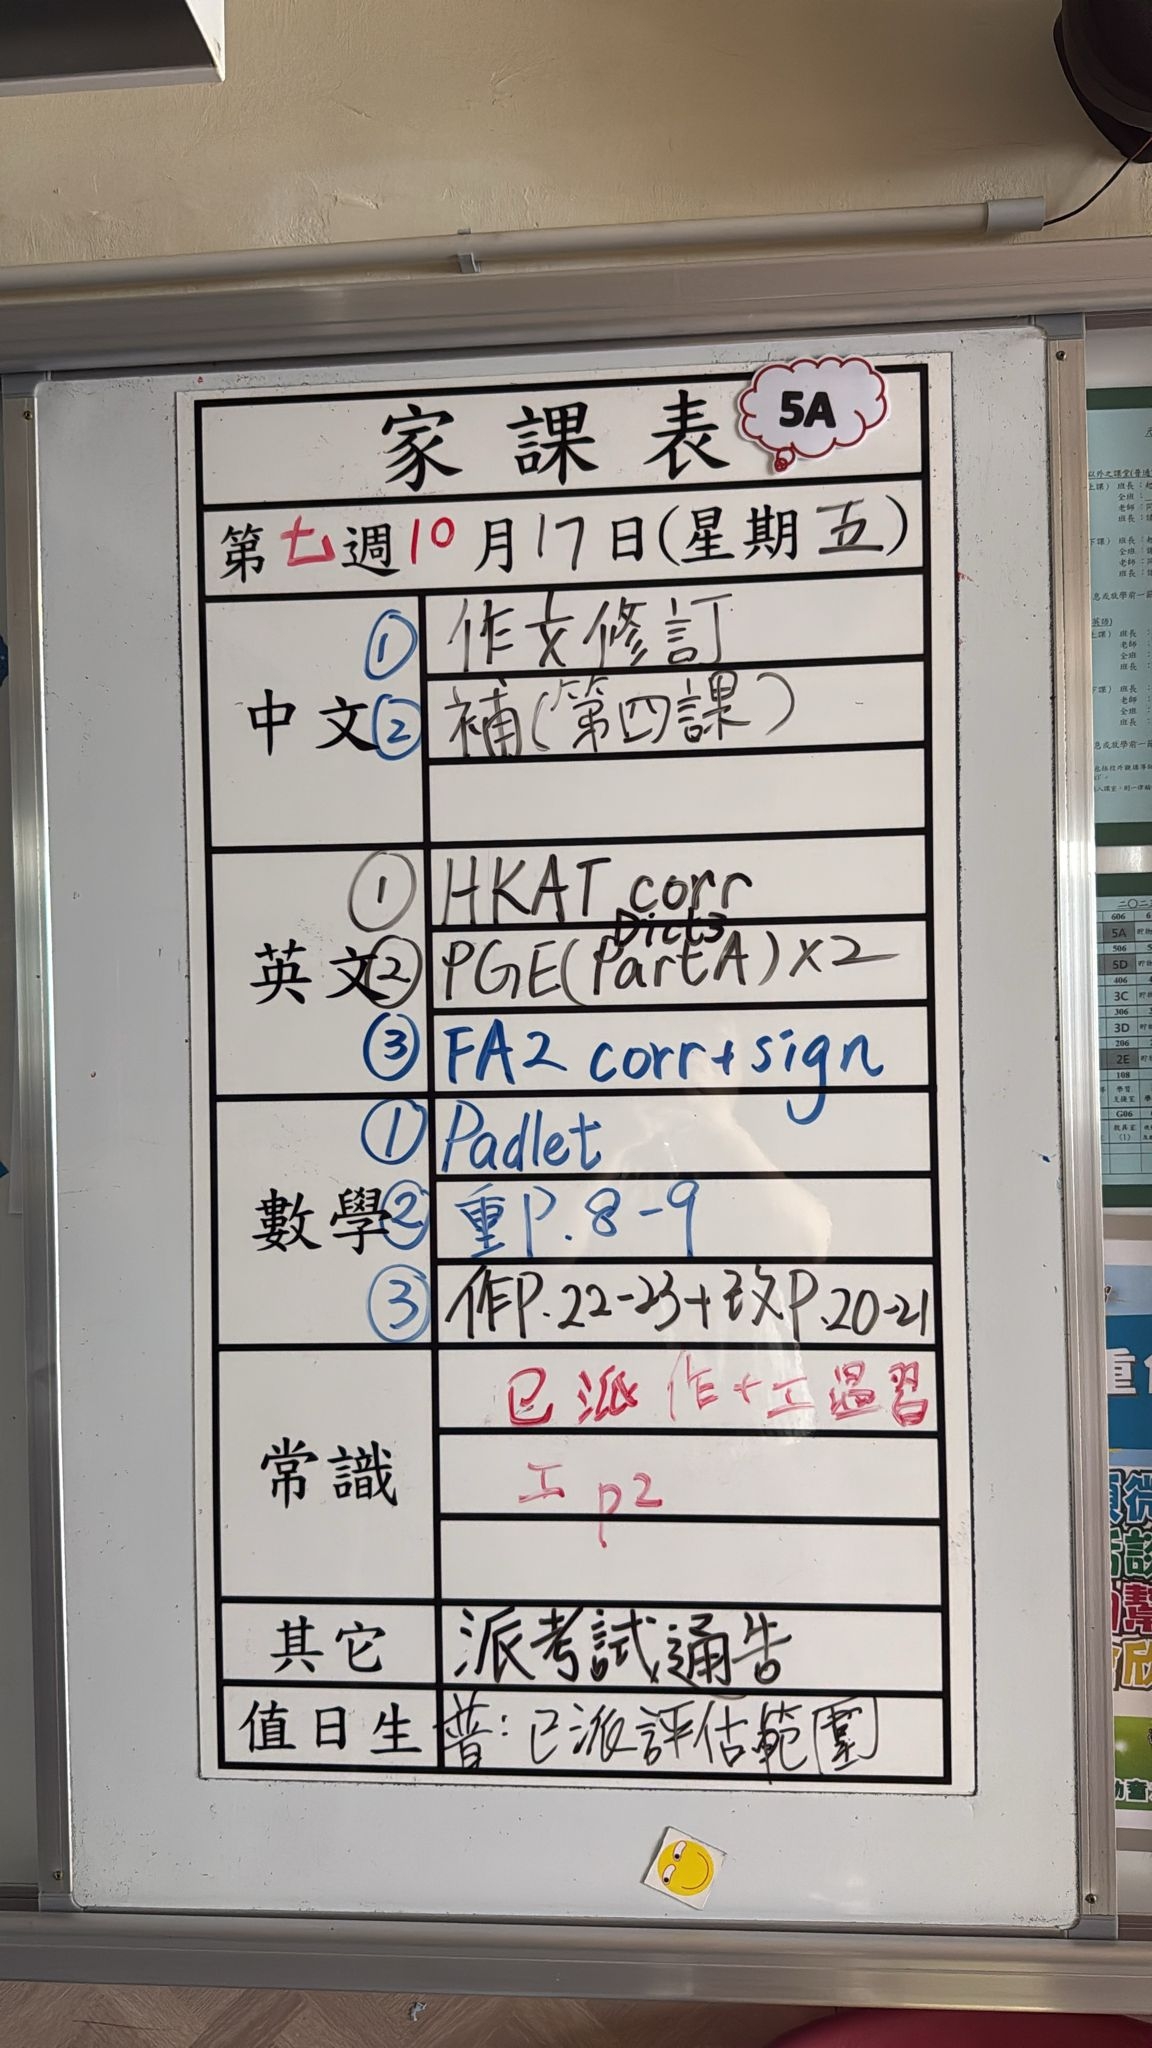 家課表 5A
第七週10月17日(星期五)
中文
① 作文修訂
② 補(第四課)
英文
① HKAT corr
Dict3
② PGE(Part A)×2
③ FA2 corr+sign
數學
① Padlet
② 重P.8-9
③ 作P.22-23+改P.20-21
常識
已派 作+工溫習
工 p2
其它 派考試通告
值日生 普:已派評估範圍
606
5A
506
5D
406
3C
306
3D
206
2E
108
G06